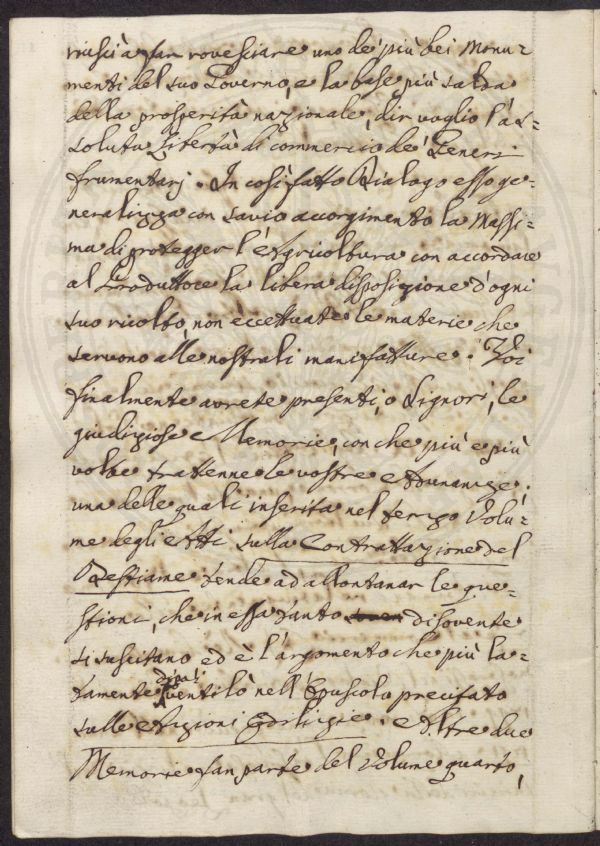 riuscì a far rovesciare uno de' più bei Monu=
menti del suo Governo, e la base più salda
della prosperità nazionale, dir voglio l'as=
soluta Libertà di commercio de' Generi
frumentarj. In così fatto Dialogo esso ge=
neralizza con savio accorgimento la Massi=
ma di protegger l'Agricoltura con accordare
al Produttore la libera disposizione d'ogni
suo ricolto, non eccettuate le materie che
servono alle nostrali manifatture. Voi
finalmente avrete presenti, o Signori, le
giudiziose Memorie, con che più e più
volte trattenne le vostre Adunanze;
una delle quali inserita nel terzo Volu=
me degli Atti sulla Contrattazione del
Bestiame tende ad allontanar le que=
stioni, che in essa tanto di sovente
si suscitano ed è l'argomento che più la=
tamente ventilò nell'Opuscolo precitato
sulle Azioni Edilizie. Altre due
Memorie fan parte del Volume quarto,